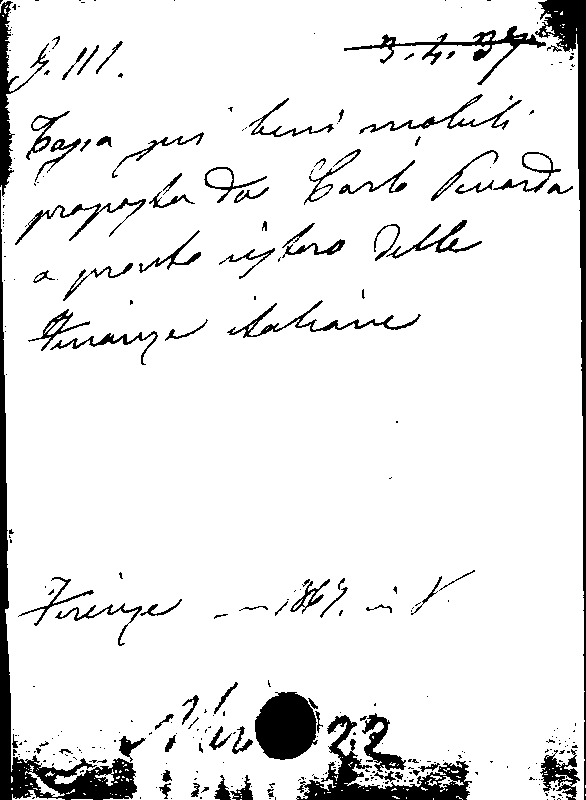 G. 111.
3.4.37
Tassa sui beni mobili
proposta da Carlo
a pronto ristoro delle
Finanze italiane
Firenze — 1867. in 8
22